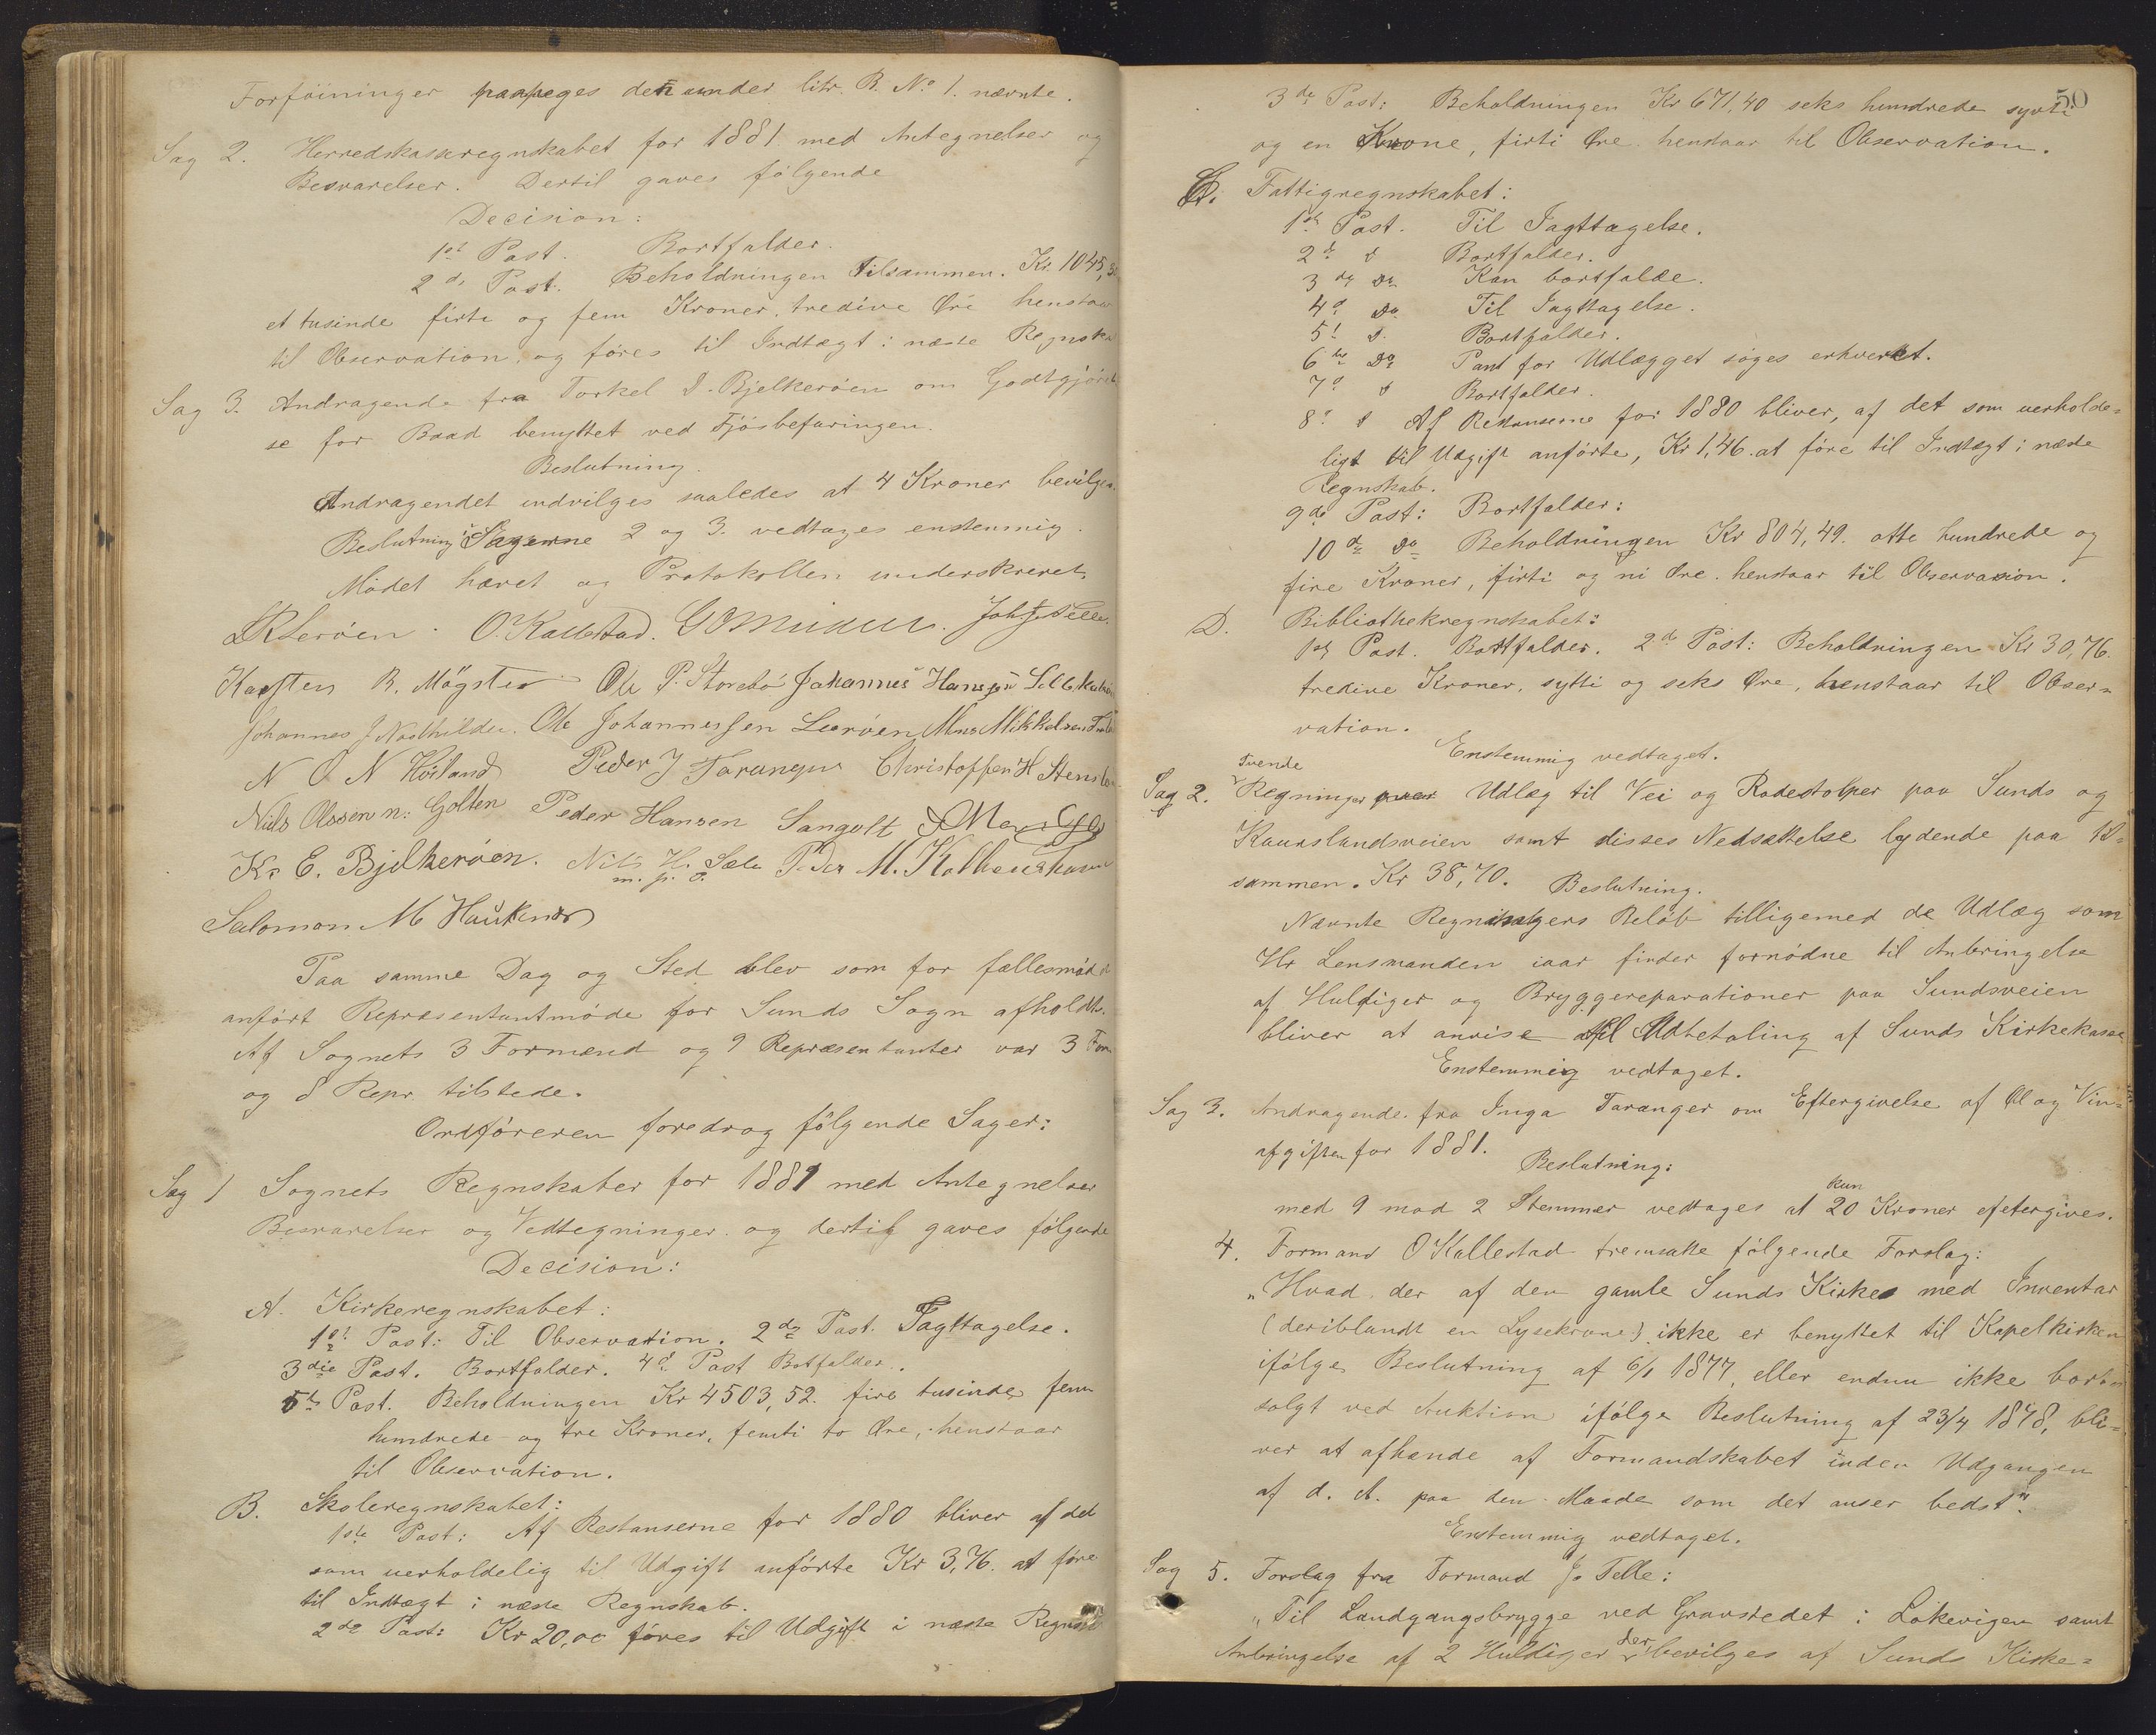 Forföininger paapeges den under litr. B. No 1. nævnte.
Sag 2. Herredskasseregnskabet for 1881 med Antegnelser og
Besvarelser. Dertil gaves følgende
Decision:
1st Post. Bortfalder.
2de Post. Beholdningen tilsammen. Kr. 1045,30
et tusinde firti og fem Kroner, tredive Øre henstaar
til Observation, og føres til Indtægt i næste Regnska
Sag 3. Andragende fra Torkel D. Bjelkeröen om Godtgjörel
se for Baad benyttet ved Fjösbefaringen.
Beslutning.
Andragendet indvilges saaledes at 4 Kroner bevilges.
Beslutning i Sagerne 2 og 3. vedtages enstemmig.
Mödet hævet og Protokollen underskrevet.
LRLeröen. O. Kallestad. Joh. J. Telle.
Karsten R. Mögster Ole P. Storebö Johannes Hansen
Johannes J Nordhilder. Ole Johannessen Leeröen Mons Mikkelsen
N O N Höiland Peder J Taranger Christoffer H Stensland
Niels Olssen n: Golten Peder Hansen Sangolt
Kr E. Bjelkeröen. Nils H. Sæle Peder M.
m. p. P.
Salomon M Haukenæs
Paa samme Dag og Sted blev som for fællesmöde
anfört Repræsentantmöde for Sunds Sogn afholdt.
Af Sognets 3 Formænd og 9 Repræsentanter var 3 For
og 8 Repr. tilstede.
Ordföreren foredrog fölgende Sager:
Sag 1 Sognets Regnskaber for 1881 med Antegnelser
Besvarelser og Vedtegninger og dertil gaves fölgende
Decision:
A. Kirkeregnskabet:
1st Post: Til Observation. 2de Post. Iagttagelse.
3die Post. Bortfalder. 4d Post Botfalder.
5te Post. Beholdningen Kr 4503,52. fire tusinde fem
hundrede og tre Kroner, femti to Øre, henstaar
til Observation.
B. Skoleregnskabet:
1ste Post: Af Restanserne for 1880 bliver af det
som uerholdelig til Udgift anförte Kr 3,76. at före
til Indtægt i næste Regnskab.
2de Post: Kr 20,00 föres til Udgift i næste Regnsk
50
3de Post: Beholdningen Kr 671,40 seks hundrede sytti
og en Krone, firti Øre henstaar til Observation.
C. Fattigregnskabet:
1ste Post. Til Iagttagelse.
2d d Bortfalder.
3de Do Kan bortfalde.
4d do Til Iagttagelse.
5t d. Bortfalder.
6te Do Pant for Udlægget söges erhvervet.
7d d Bortfalder.
8d d Af Restanserne for 1880 bliver, af det som uerholde-
ligt til Udgift anförte, Kr 1,46. at före til Indtægt i næste
Regnskab.
9de Post: Bortfalder:
10de Do Beholdningen Kr 804,49. otte hundrede og
fire Kroner, firti og ni Øre. henstaar til Observasion.
D. Bibliothekregnskabet:
1st Post. Bortfalder. 2de Post: Beholdningen Kr 30,76.
tredive Kroner, sytti og seks Øre, henstaar til Obser-
vation.
Enstemmig vedtaget.
Tvende
Sag 2. Regninger over Udlæg til Vei og Rodestolper paa Sunds og
Kaurslandsveien samt disses Nedsættelse lydende paa til-
sammen. Kr 38,70. Beslutning.
Nævnte Regningers Belöb tilligemed de Udlæg som
Hr Lensmanden iaar finder fornödne til Anbringelse
af Huldiger og Bryggereparationer paa Sundsveien
bliver at anvise til Udbetaling af Sunds Kirkekasse
Enstemmig vedtaget.
Sag 3. Andragende fra Inga Taranger om Eftergivelse af Øl og Vin-
afgiften for 1881. Beslutning:
kun
med 9 mod 2 Stemmer vedtages at 20 Kroner eftergives.
4. Formand O Kallestad fremsatte fölgende Forslag:
"Hvad der af den gamle Sunds Kirke med Inventar
(deriblandt en Lysekrone) ikke er benyttet til Kapelkirken
ifölge Beslutning af 6/1 1877, eller endnu ikke bort
solgt ved Auktion ifölge Beslutning af 23/4 1878, bli-
ver at afhænde af Formandskabet inden Udgangen
af d. A. paa den Maade som det anser bedst".
Enstemmig vedtaget.
Sag 5. Forslag fra Formand J. Telle:
"Til Landgangsbrygge ved Gravstedet i Lökevigen samt
Anbringelse af 2 Huldiger der, bevilges af Sunds Kirke-